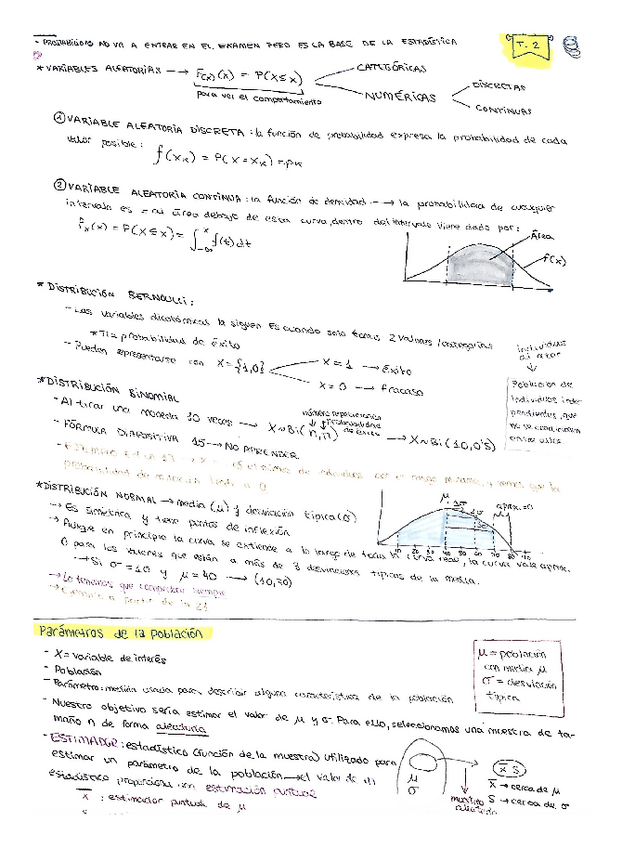 - PROBABILIDAD NO VA A ENTRAR EN EL EXAMEN PERO ES LA BASE DE LA ESTADÍSTICA
T. 2
* VARIABLES ALEATORIAS → F(x)(x) = P(X≤x)
para ver el comportamiento
CATEGÓRICAS
NUMÉRICAS
DISCRETAS
CONTINUAS
① VARIABLE ALEATORIA DISCRETA : la función de probabilidad expresa la probabilidad de cada
valor posible : f(xk) = P(X = xk) = pk
② VARIABLE ALEATORIA CONTINUA : la función de densidad → la probabilidad de cualquier
intervalo es = al área debajo de esa curva, dentro del intervalo viene dado por :
Fx(x) = P(X≤x) = ∫ f(t) dt
x
-∞
Área
f(x)
* DISTRIBUCIÓN BERNOULLI :
- Las variables dicotómicas la siguen Es cuando solo tienes 2 valores/categorías
* π = probabilidad de éxito
- Pueden representarse con X = {1,0}
X = 1 → Éxito
X = 0 → Fracaso
individuos
al azar
Población de
individuos inde
pendientes, que
no se relacionen
entre ellos
* DISTRIBUCIÓN BINOMIAL
- Al tirar una moneda 10 veces → X~Bi(n,π) → X~Bi(10,0'5)
número repeticiones
Probabilidad
de éxito
- FÓRMULA DIAPOSITIVA 15 → NO APRENDER
* DISTRIBUCIÓN NORMAL → media (μ) y desviación típica (σ)
→ Es simétrica y tiene puntos de inflexión
→ Aunque en principio la curva se extiende a lo largo de toda la curva real, la curva vale aprox.
0 para los valores que están a más de 3 desviaciones típicas de la media.
→ Si σ = 10 y μ = 40 → (10,70)
→ Lo tenemos que comprobar siempre
μ
aprox. = 0
Parámetros de la población
- X = variable de interés
- Población
- Parámetro : medida usada para describir alguna característica de la población
- Nuestro objetivo sería estimar el valor de μ y σ. Para ello, seleccionamos una muestra de ta-
maño n de forma aleatoria
μ = población
con media μ
σ = desviación
típica
- ESTIMADOR : estadístico (función de la muestra) utilizado para
estimar un parámetro de la población → el valor de
estadístico proporciona una estimación puntual
X̄ : estimador puntual de μ
μ
σ
muestra
aleatoria
X̄ S
X̄ → cerca de μ
S → cerca de σ